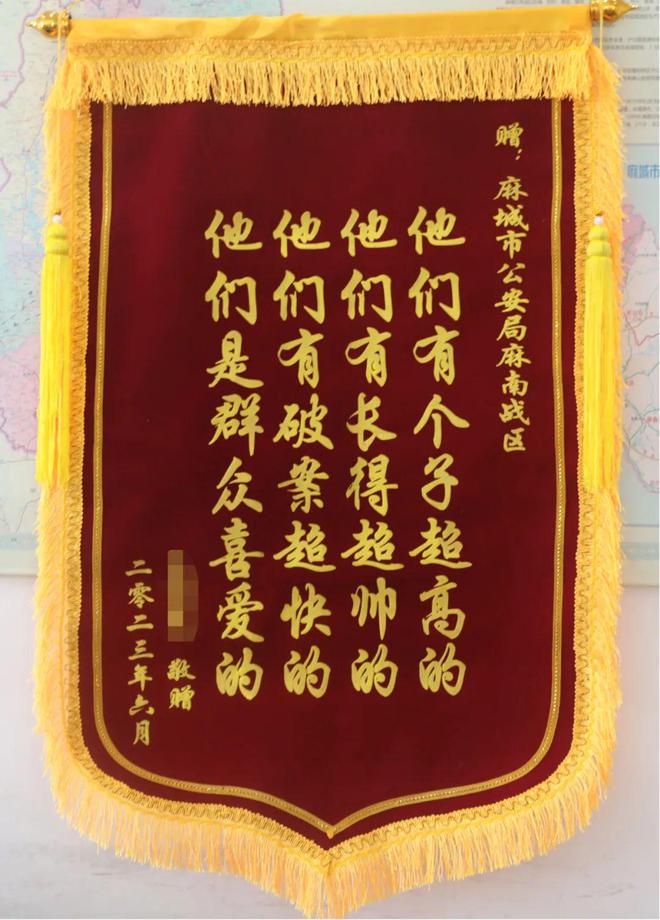 赠：麻城市公安局麻南战区
他们有个子超高的
他们有长得超帅的
他们有破案超快的
他们是群众喜爱的
敬赠
二零二三年六月
麻城市